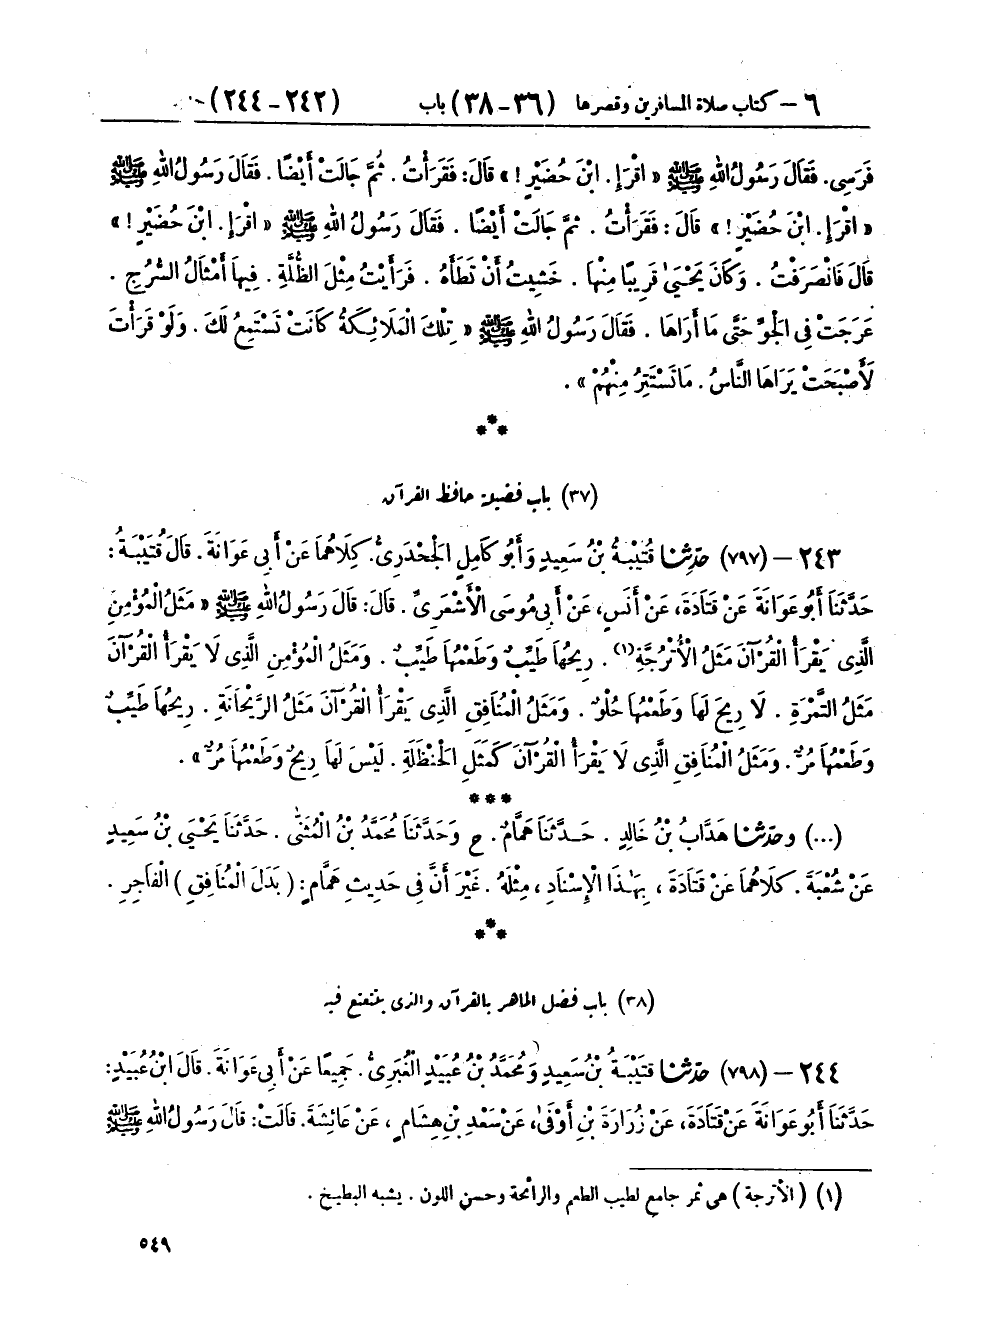 ٦ – كتاب صلاة المسافرين وقصرها (٣٦-٣٨) باب (٢٤٢-٢٤٤)
فَرَسِى. فَقَالَ رَسُولُ اللهِ ﷺ « اقْرَإِ. ابْنَ حُضَيْرٍ ! » قَالَ: فَقَرَأْتُ. ثُمَّ جَالَتْ أَيْضًا. فَقَالَ رَسُولُ اللهِ ﷺ
« اقْرَإِ. ابْنَ حُضَيْرٍ ! » قَالَ : فَقَرَأْتُ. ثُمَّ جَالَتْ أَيْضًا. فَقَالَ رَسُولُ اللهِ ﷺ « اقْرَإِ. ابْنَ حُضَيْرٍ ! »
قَالَ فَانْصَرَفْتُ. وَكَانَ يَحْيَىٰ قَرِيبًا مِنْهَا. خَشِيتُ أَنْ تَطَأَهُ. فَرَأَيْتُ مِثْلَ الظُّلَّةِ. فِيهَا أَمْثَالُ السُّرُجِ.
عَرَجَتْ فِى الْجَوِّ حَتَّى مَا أَرَاهَا. فَقَالَ رَسُولُ اللهِ ﷺ « تِلْكَ الْمَلَائِكَةُ كَانَتْ تَسْتَمِعُ لَكَ. وَلَوْ قَرَأْتَ
لَأَصْبَحَتْ يَرَاهَا النَّاسُ. مَا تَسْتَتِرُ مِنْهُمْ ».
***
(٣٧) باب فضيلة حافظ القرآن
٢٤٣ – (٧٩٧) حَدَّثَنَا قُتَيْبَةُ بْنُ سَعِيدٍ وَأَبُو كَامِلٍ الْجَحْدَرِىُّ. كِلَاهُمَا عَنْ أَبِى عَوَانَةَ. قَالَ قُتَيْبَةُ :
حَدَّثَنَا أَبُو عَوَانَةَ عَنْ قَتَادَةَ، عَنْ أَنَسٍ، عَنْ أَبِى مُوسَى الْأَشْعَرِىِّ. قَالَ: قَالَ رَسُولُ اللهِ ﷺ « مَثَلُ الْمُؤْمِنِ
الَّذِى يَقْرَأُ الْقُرْآنَ مَثَلُ الْأُتْرُجَّةِ(١). رِيحُهَا طَيِّبٌ وَطَعْمُهَا طَيِّبٌ. وَمَثَلُ الْمُؤْمِنِ الَّذِى لَا يَقْرَأُ الْقُرْآنَ
مَثَلُ التَّمْرَةِ. لَا رِيحَ لَهَا وَطَعْمُهَا حُلْوٌ. وَمَثَلُ الْمُنَافِقِ الَّذِى يَقْرَأُ الْقُرْآنَ مَثَلُ الرَّيْحَانَةِ. رِيحُهَا طَيِّبٌ
وَطَعْمُهَا مُرٌّ. وَمَثَلُ الْمُنَافِقِ الَّذِى لَا يَقْرَأُ الْقُرْآنَ كَمَثَلِ الْحَنْظَلَةِ. لَيْسَ لَهَا رِيحٌ وَطَعْمُهَا مُرٌّ ».
***
(...) وحَدَّثَنَا هَدَّابُ بْنُ خَالِدٍ. حَدَّثَنَا هَمَّامٌ. ح وَحَدَّثَنَا مُحَمَّدُ بْنُ الْمُثَنَّىٰ. حَدَّثَنَا يَحْيَى بْنُ سَعِيدٍ
عَنْ شُعْبَةَ. كِلَاهُمَا عَنْ قَتَادَةَ، بِهَٰذَا الْإِسْنَادِ، مِثْلَهُ. غَيْرَ أَنَّ فِى حَدِيثِ هَمَّامٍ: ( بَدَلَ الْمُنَافِقِ ) الْفَاجِرِ.
***
(٣٨) باب فضل الماهر بالقرآن والذى يتتعتع فيه
٢٤٤ – (٧٩٨) حَدَّثَنَا قُتَيْبَةُ بْنُ سَعِيدٍ وَمُحَمَّدُ بْنُ عُبَيْدٍ الْغُبَرِىُّ. جَمِيعًا عَنْ أَبِى عَوَانَةَ. قَالَ ابْنُ عُبَيْدٍ:
حَدَّثَنَا أَبُو عَوَانَةَ عَنْ قَتَادَةَ، عَنْ زُرَارَةَ بْنِ أَوْفَىٰ، عَنْ سَعْدِ بْنِ هِشَامٍ، عَنْ عَائِشَةَ. قَالَتْ: قَالَ رَسُولُ اللهِ ﷺ
(١) ( الأترجة ) هى ثمر جامع لطيب الطعم والرائحة وحسن اللون. يشبه البطيخ.
٥٤٩